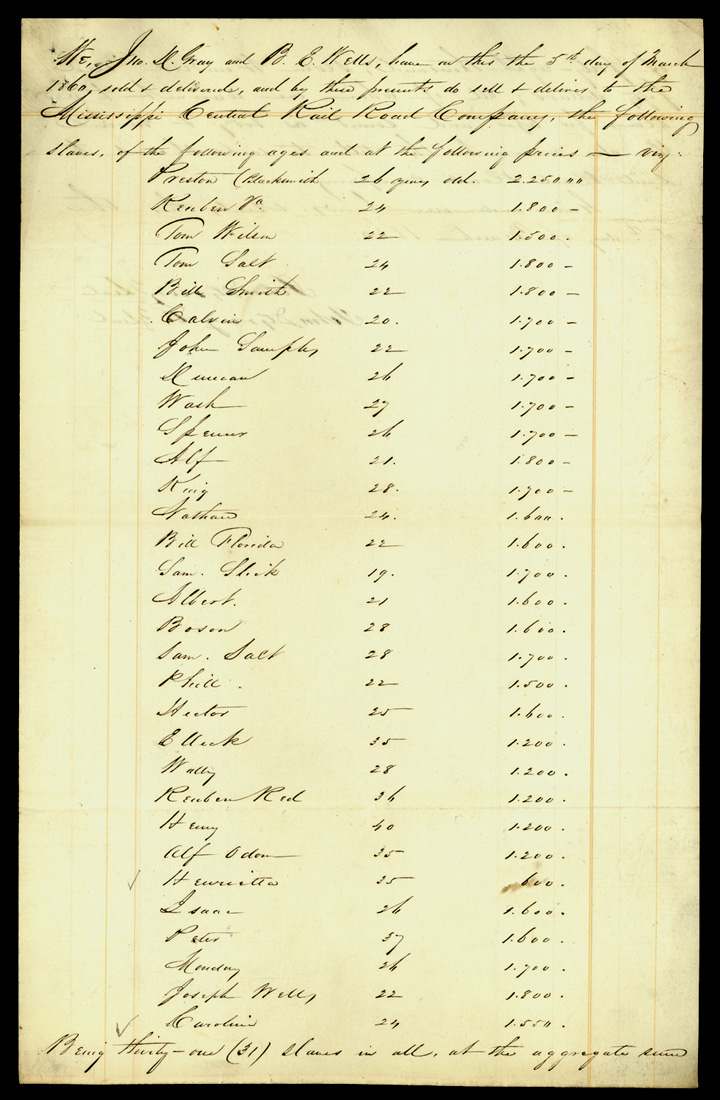 We, Jno. D. Gray and B. E. Wells, have on this the 5th day of March
1860, sold & delivered, and by these presents do sell & deliver to the
Mississippi Central Rail Road Company, the following
slaves, of the following ages and at the following prices — viz:
Preston (Blacksmith 26 years old. 2.250 00
Reuben Va 24 1.800 –
Tom Wilson 22 1.500.
Tom Salt 24 1.800 –
Bill Smith 22 1.800 –
Calvin 20. 1.700 –
John Samples 22 1.700 –
Duncan 26 1.700 –
Wash 27 1.700 –
Spencer 26 1.700 –
Alf 21. 1.800 –
King 28. 1.700 –
Nathan 24. 1.600.
Bill Florida 22 1.600.
Sam. Slick 19. 1.700.
Albert. 21 1.600.
Boson 28 1.600.
Sam. Salt 28 1.700.
Phill. 22 1.500.
Hector 25 1.600.
Elleck 35 1.200.
Wally 28 1.200.
Reuben Red 36 1.200.
Henry 40 1.200.
Alf Odom 35 1.200.
Henrietta 35 600.
Isaac 26 1.600.
Peter 37 1.600.
Monday 26 1.700.
Joseph Wells 22 1.800.
Caroline 24 1.550.
Being thirty-one (31) slaves in all, at the aggregate sum